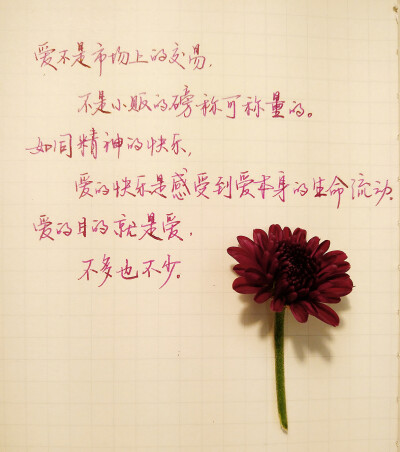 爱不是市场上的交易,
不是小贩的磅称可称量的。
如同精神的快乐,
爱的快乐是感受到爱本身的生命流动。
爱的目的就是爱,
不多也不少。